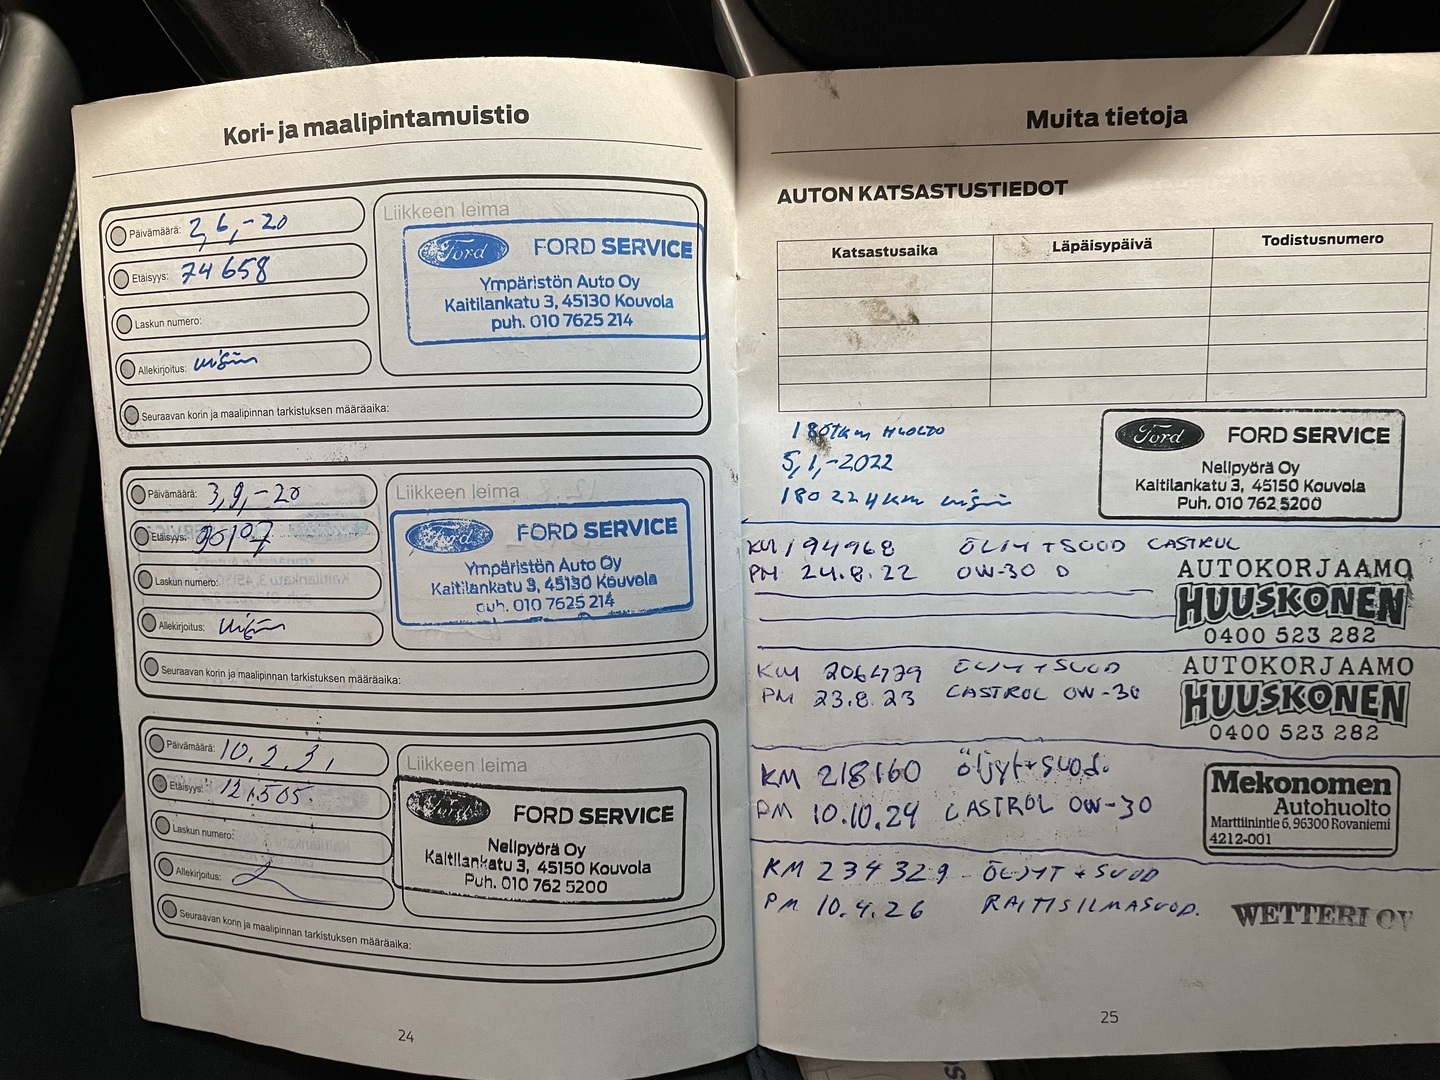 Kori- ja maalipintamuistio
Päivämäärä: 2,6,-20
Etäisyys: 74658
Laskun numero:
Allekirjoitus:
Seuraavan korin ja maalipinnan tarkistuksen määräaika:
Liikkeen leima
Ford FORD SERVICE
Ympäristön Auto Oy
Kaitilankatu 3, 45130 Kouvola
puh. 010 7625 214
Päivämäärä: 3,9,-20
Etäisyys: 95107
Laskun numero:
Allekirjoitus:
Seuraavan korin ja maalipinnan tarkistuksen määräaika:
Liikkeen leima
Ford FORD SERVICE
Ympäristön Auto Oy
Kaitilankatu 3, 45130 Kouvola
puh. 010 7625 214
Päivämäärä: 10.2.21
Etäisyys: 121.505.
Laskun numero:
Allekirjoitus:
Seuraavan korin ja maalipinnan tarkistuksen määräaika:
Liikkeen leima
Ford FORD SERVICE
Nelipyörä Oy
Kaitilankatu 3, 45150 Kouvola
Puh. 010 762 5200
24
Muita tietoja
AUTON KATSASTUSTIEDOT
Katsastusaika Läpäisypäivä Todistusnumero
180TKm HUOLTO
5,1,-2022
180 224km
Ford FORD SERVICE
Nelipyörä Oy
Kaitilankatu 3, 45150 Kouvola
Puh. 010 762 5200
KM 194968 ÖLJYT+SUOD CASTROL
PM 24.8.22 0W-30 D
AUTOKORJAAMO
HUUSKONEN
0400 523 282
KM 206479 ÖLJYT+SUOD
PM 23.8.23 CASTROL 0W-30
AUTOKORJAAMO
HUUSKONEN
0400 523 282
KM 218160 öljyt+suod.
PM 10.10.24 CASTROL 0W-30
Mekonomen
Autohuolto
Marttiinintie 6, 96300 Rovaniemi
4212-001
KM 234329 ÖLJYT + SUOD
PM 10.4.26 RAITISILMASUOD.
WETTERI OY
25